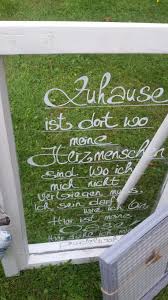 Zuhause
ist dort wo
meine
Herzmenschen
sind wo ich
mich nicht
verbiegen muss,
ich sein darf wie ich bin
Hier ist meine